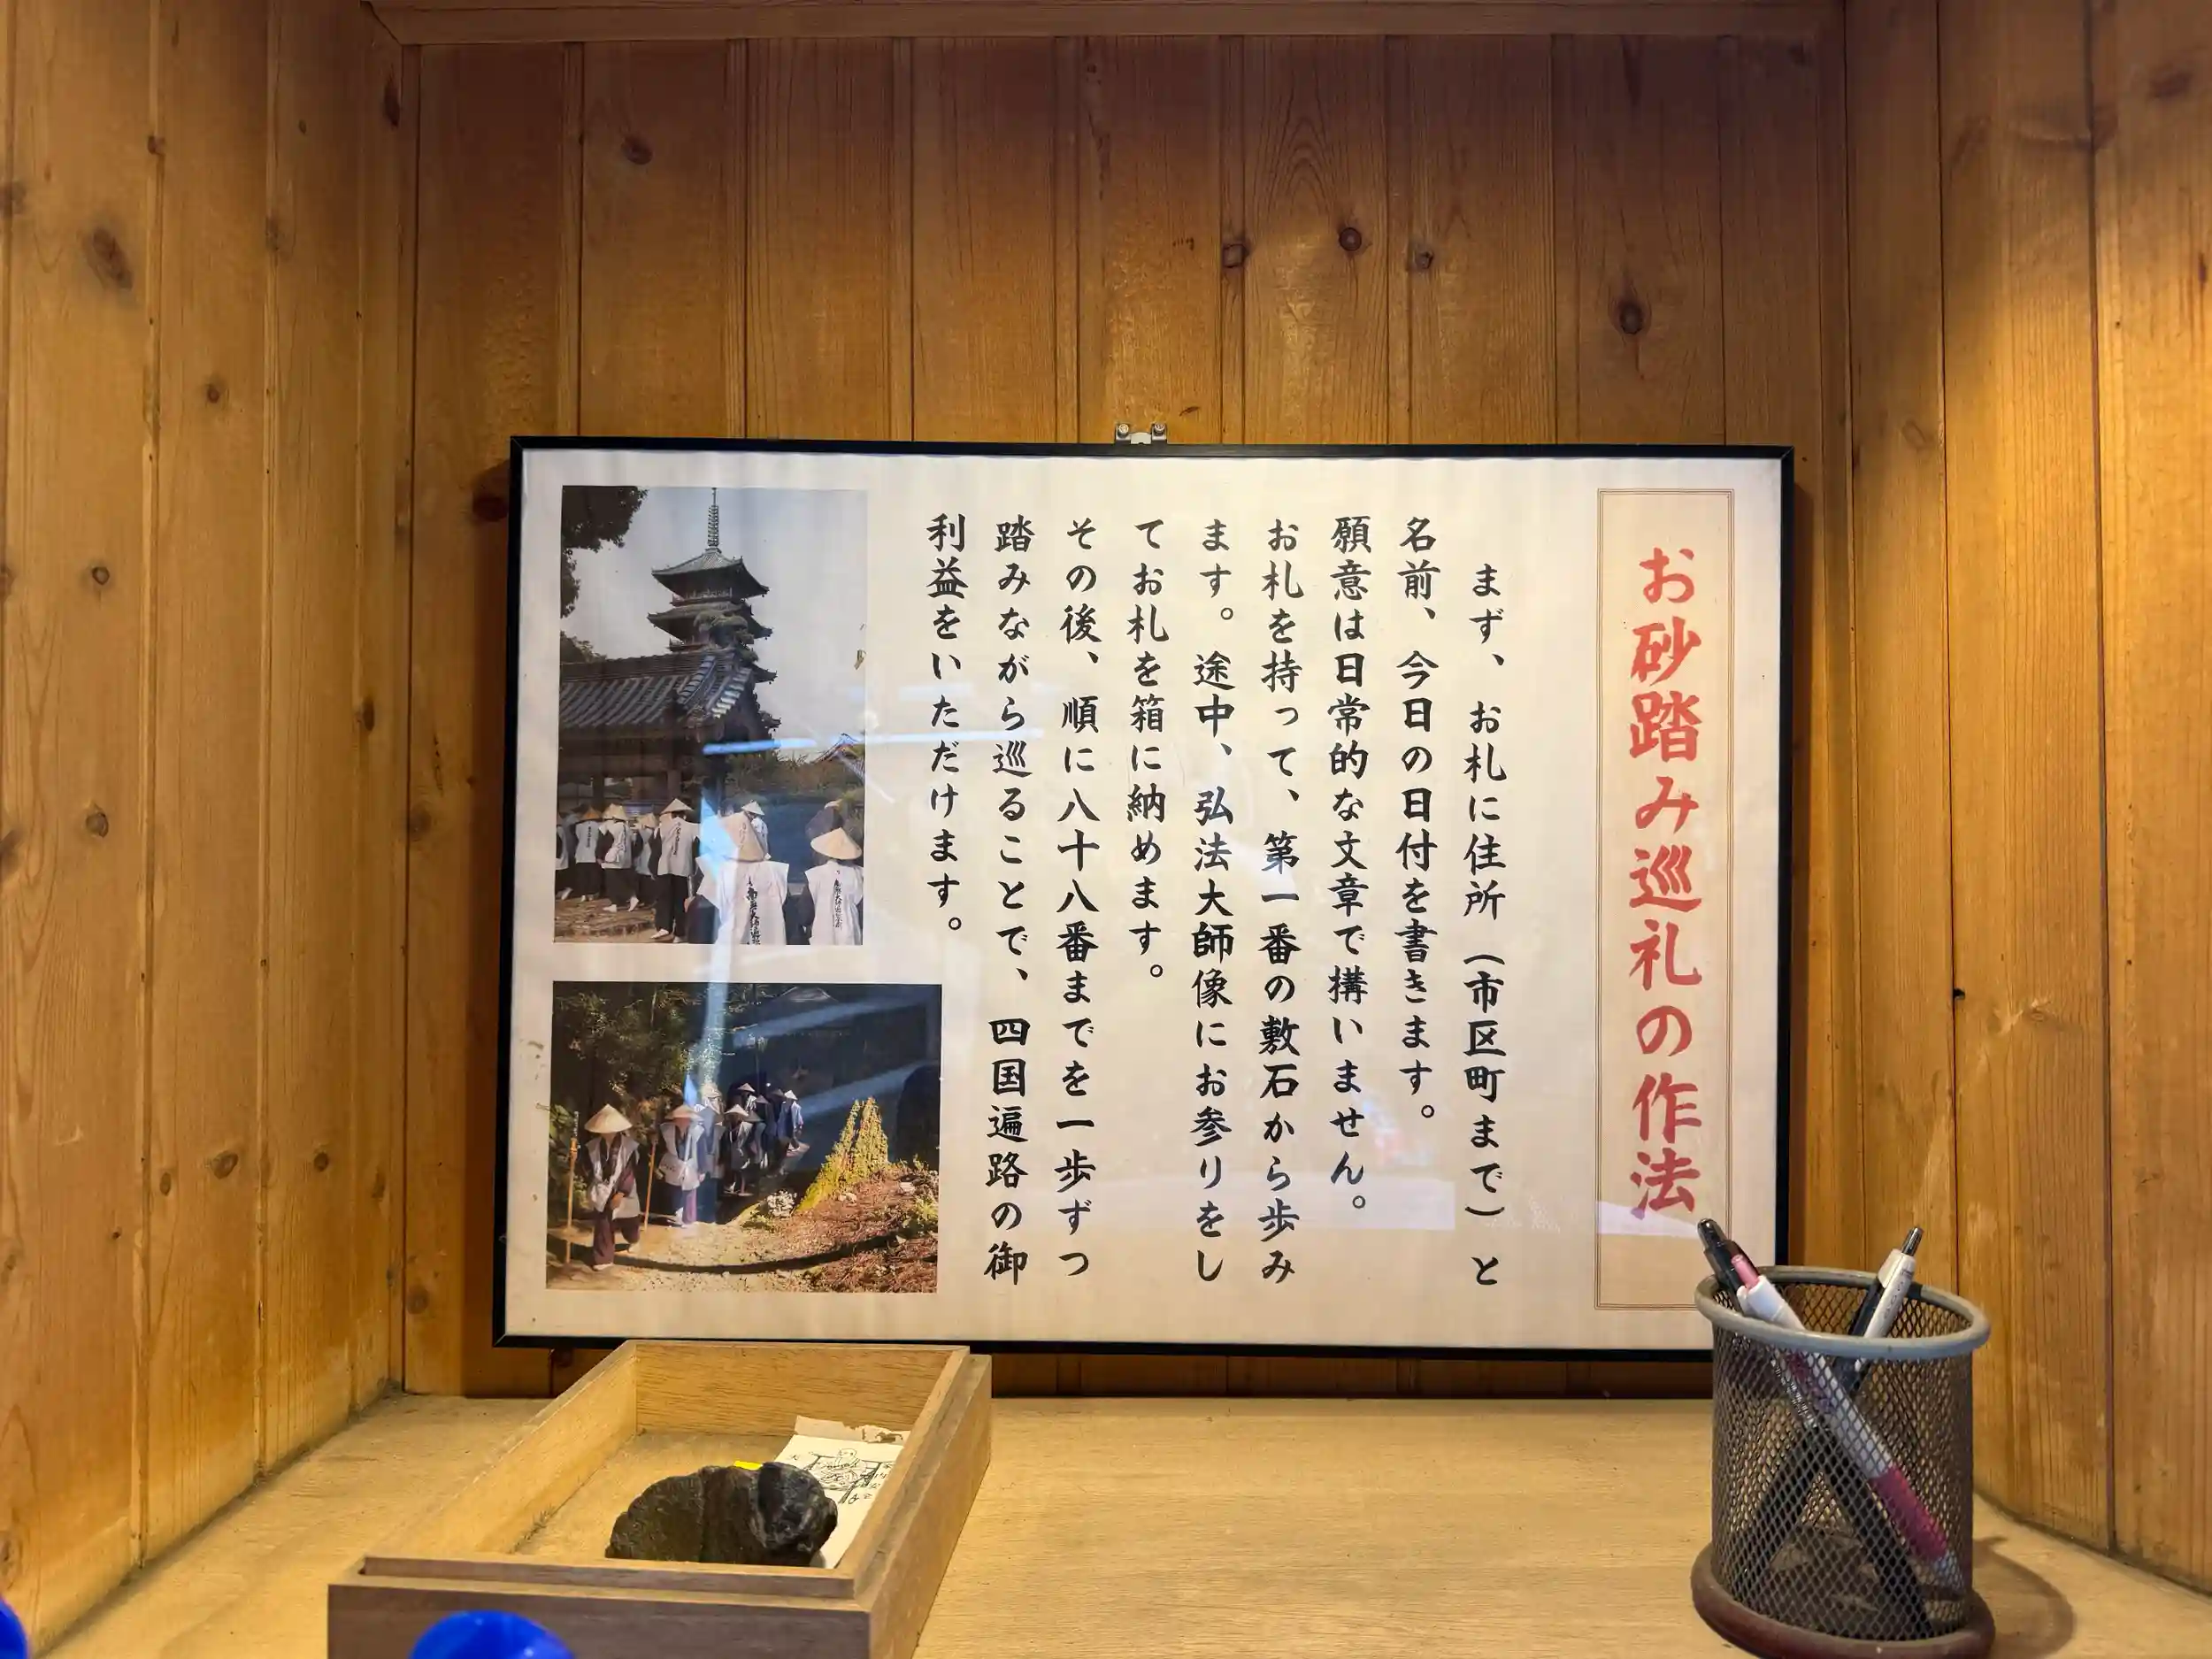 お砂踏み巡礼の作法
まず、お札に住所（市区町まで）と
名前、今日の日付を書きます。
願意は日常的な文章で構いません。
お札を持って、第一番の敷石から歩み
ます。途中、弘法大師像にお参りをし
てお札を箱に納めます。
その後、順に八十八番までを一歩ずつ
踏みながら巡ることで、四国遍路の御
利益をいただけます。